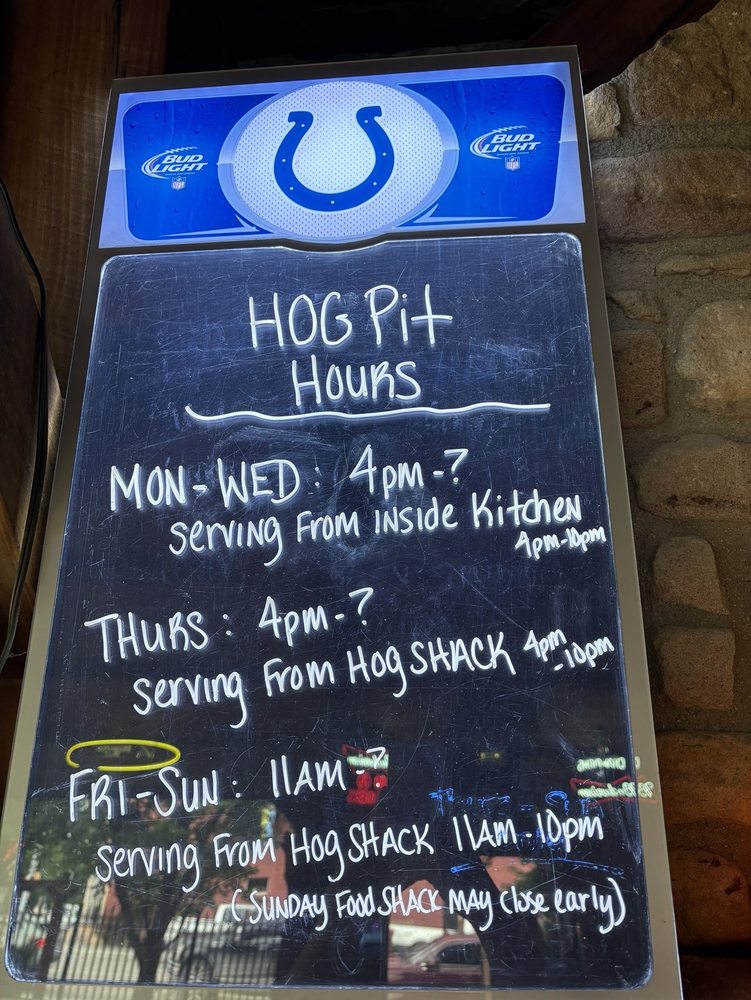 BUD LIGHT
BUD LIGHT
HOG Pit
HOURS
MON-WED: 4pm-?
Serving From inside Kitchen
4pm-10pm
THURS: 4pm-?
Serving From Hog SHACK 4pm
-10pm
FRI-SUN: 11AM-?
Serving From Hog SHACK 11AM-10pm
(SUNDAY Food SHACK MAY Close early)